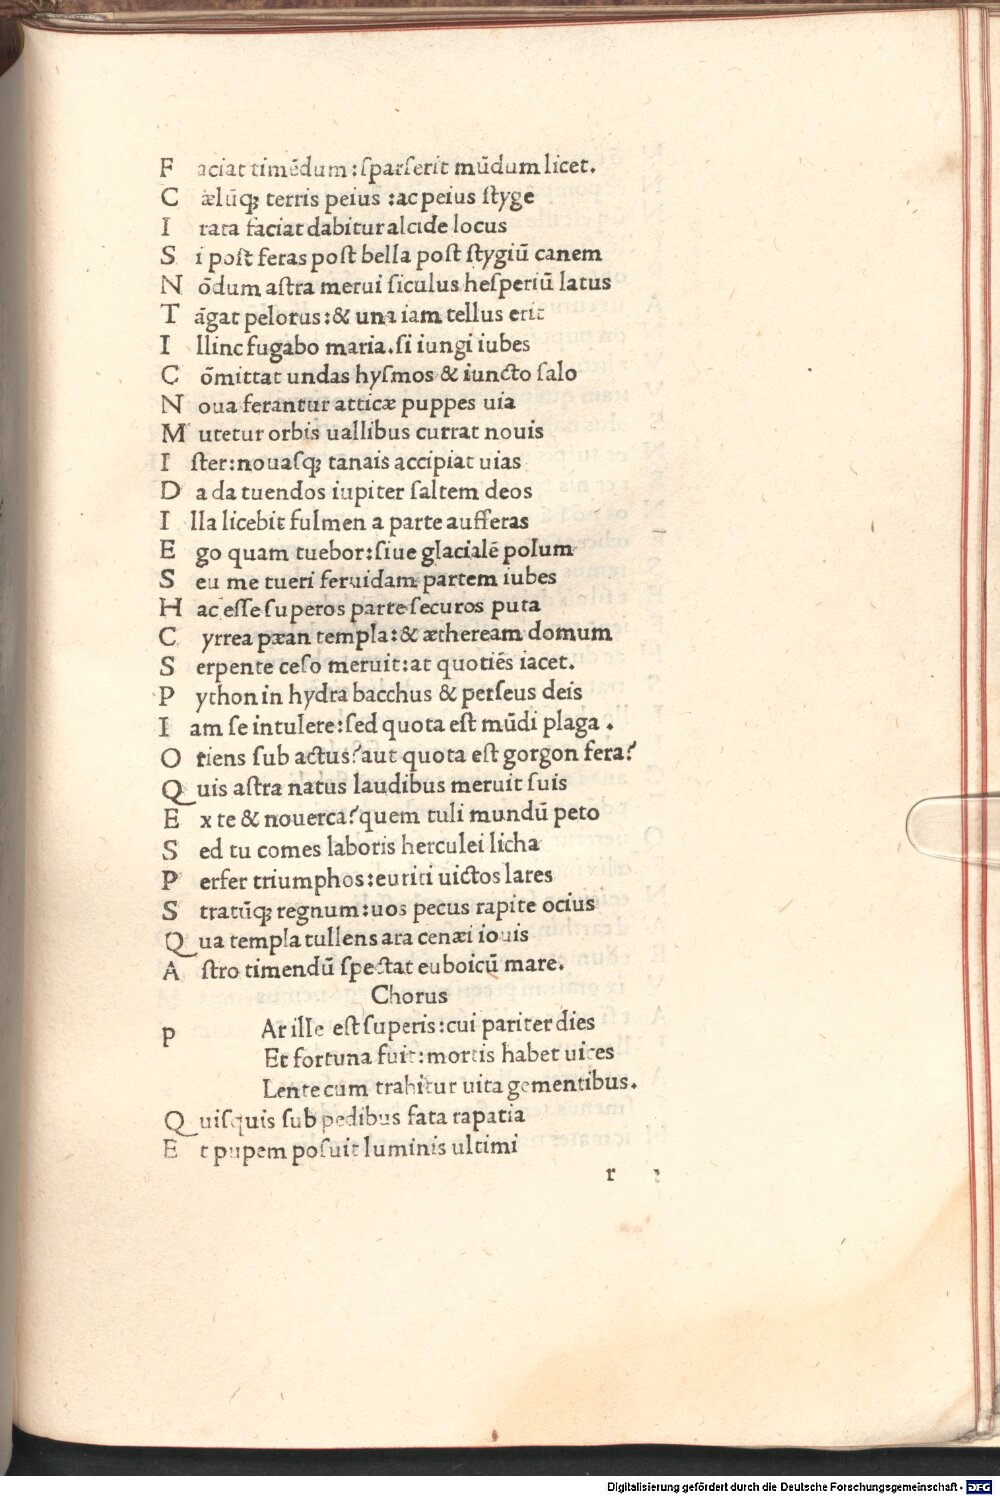 F aciat timēdum:ſparſerit mūdum licet.
C ælūq; terris peius :ac peius ſtyge
I rata faciat dabitur alcide locus
S i poſt feras poſt bella poſt ſtygiū canem
N ōdum aſtra merui ſiculus heſperiū latus
T āgat pelorus:& una iam tellus erit
I llinc fugabo maria.ſi iungi iubes
C ōmittat undas hyſmos & iuncto ſalo
N oua ferantur atticæ puppes uia
M utetur orbis uallibus currat nouis
I ſter:nouaſq; tanais accipiat uias
D a da tuendos iupiter ſaltem deos
I lla licebit fulmen a parte aufferas
E go quam tuebor:ſiue glacialē polum
S eu me tueri feruidam partem iubes
H ac eſſe ſuperos parte ſecuros puta
C yrrea pæan templa:& ætheream domum
S erpente ceſo meruit:at quotiēs iacet.
P ython in hydra bacchus & perſeus deis
I am ſe intulere:ſed quota eſt mūdi plaga .
O riens ſub actus?aut quota eſt gorgon fera?
Q uis aſtra natus laudibus meruit ſuis
E x te & nouerca?quem tuli mundū peto
S ed tu comes laboris herculei licha
P erfer triumphos:euriti uictos lares
S tratūq; regnum:uos pecus rapite ocius
Q ua templa tullens ara cenæi iouis
A ſtro timendū ſpectat euboicū mare.
Chorus
p Ar ille eſt ſuperis:cui pariter dies
Et fortuna fuit:mortis habet uices
Lente cum trahitur uita gementibus.
Q uiſquis ſub pedibus fata rapatia
E t pupem poſuit luminis ultimi
r
Digitalisierung gefördert durch die Deutsche Forschungsgemeinschaft - DFG